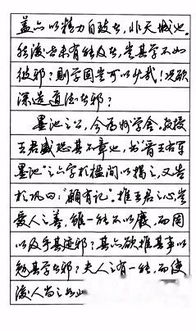 盖亦以精力自致者，非天成也。
然後世未有能及者，岂其学不如
彼邪？则学固岂可以少哉！况欲
深造道德者邪？
墨池之上，今为州学舍。教授
王君盛恐其不章也，书“晋王右军
墨池”之六字於楹间以揭之，又告
於巩曰：“願有记”。推王君之心，岂
爱人之善，雖一能不以廢，而因
以及乎其迹邪？其亦欲推其事以
勉其学者邪？夫人之有一能，而使
後人尚之如此